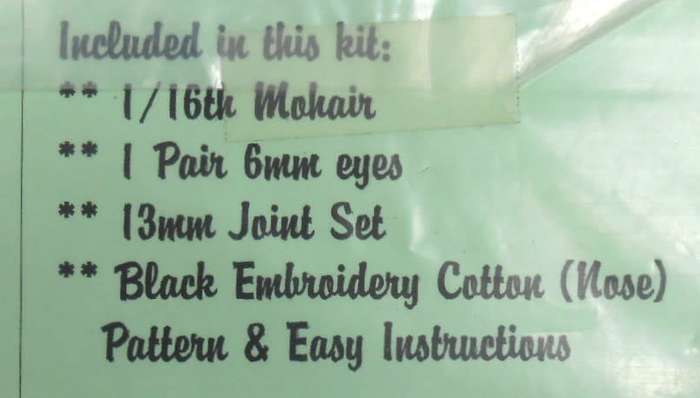 Included in this kit:
** 1/16th Mohair
** 1 Pair 6mm eyes
** 13mm Joint Set
** Black Embroidery Cotton (Nose)
Pattern & Easy Instructions